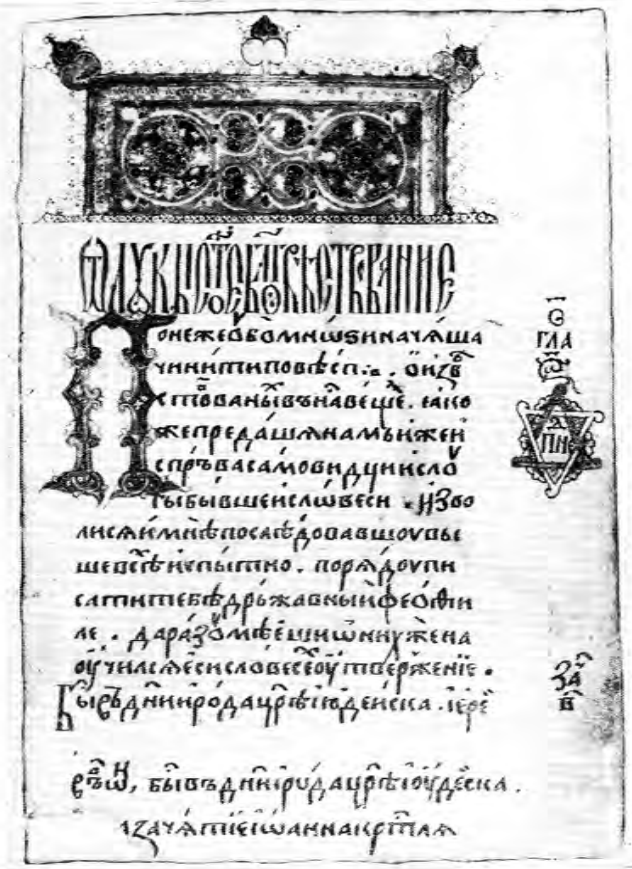 ѾЛУКЫСТ҃ОЕБЛ҃ГОВѢСТВОВАНИЕ
Понежеꙋбомноѕиначѧша
чинитиповѣсть. ѡизвѣ
стованыⷯвънаⷭвещеⷯ. ꙗко
жепредашѧнамъиже и
спръвасамовидциислоу
гыбывшеисловеси. изво
лисѧимнѣпослѣдовавшоувы
шевсѣⷨиспытно. порѧдоупи
сатитебѣдръжавныиѳеѡѳи
ле. даразꙋмѣешиѡниⷯженa
оучилсѧесисловесеⷯоутвержение.
Быⷭ҇въдниіродацр҃ѣіюдеиска. іере
бывъдниіродацр҃ѣіоудеска.
зачѧтиеіѡаннакрⷭ҇тлѧ
гла
пⷩ҇е
заⷱ҇
в҃